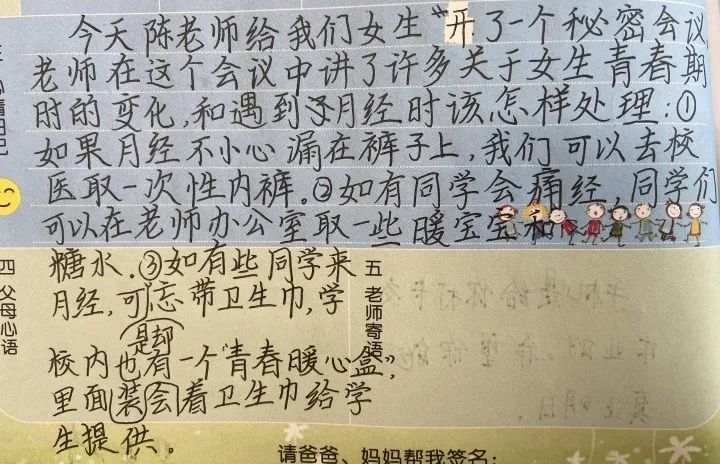 今天陈老师给我们女生“开了一个秘密会议
老师在这个会议中讲了许多关于女生青春期
时的变化,和遇到月经时该怎样处理:①
如果月经不小心漏在裤子上,我们可以去校
医取一次性内裤。②如有同学会痛经,同学们
可以在老师办公室取一些暖宝宝和
糖水.③如有些同学来
月经,可忘带卫生巾,学
是却
校内也有一个“青春暖心盒”,
里面装会着卫生巾给学
生提供。
四 父母心语
五 老师寄语
请爸爸、妈妈帮我签名: